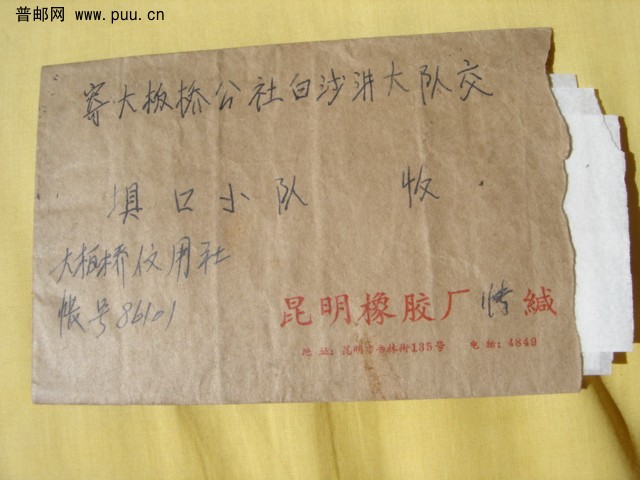 普邮网 www.puu.cn
寄大板桥公社白沙井大队交
坝口小队 收.
大板桥信用社
帐号86101
昆明橡胶厂 缄
地址:昆明市 林街135号 电话:4849